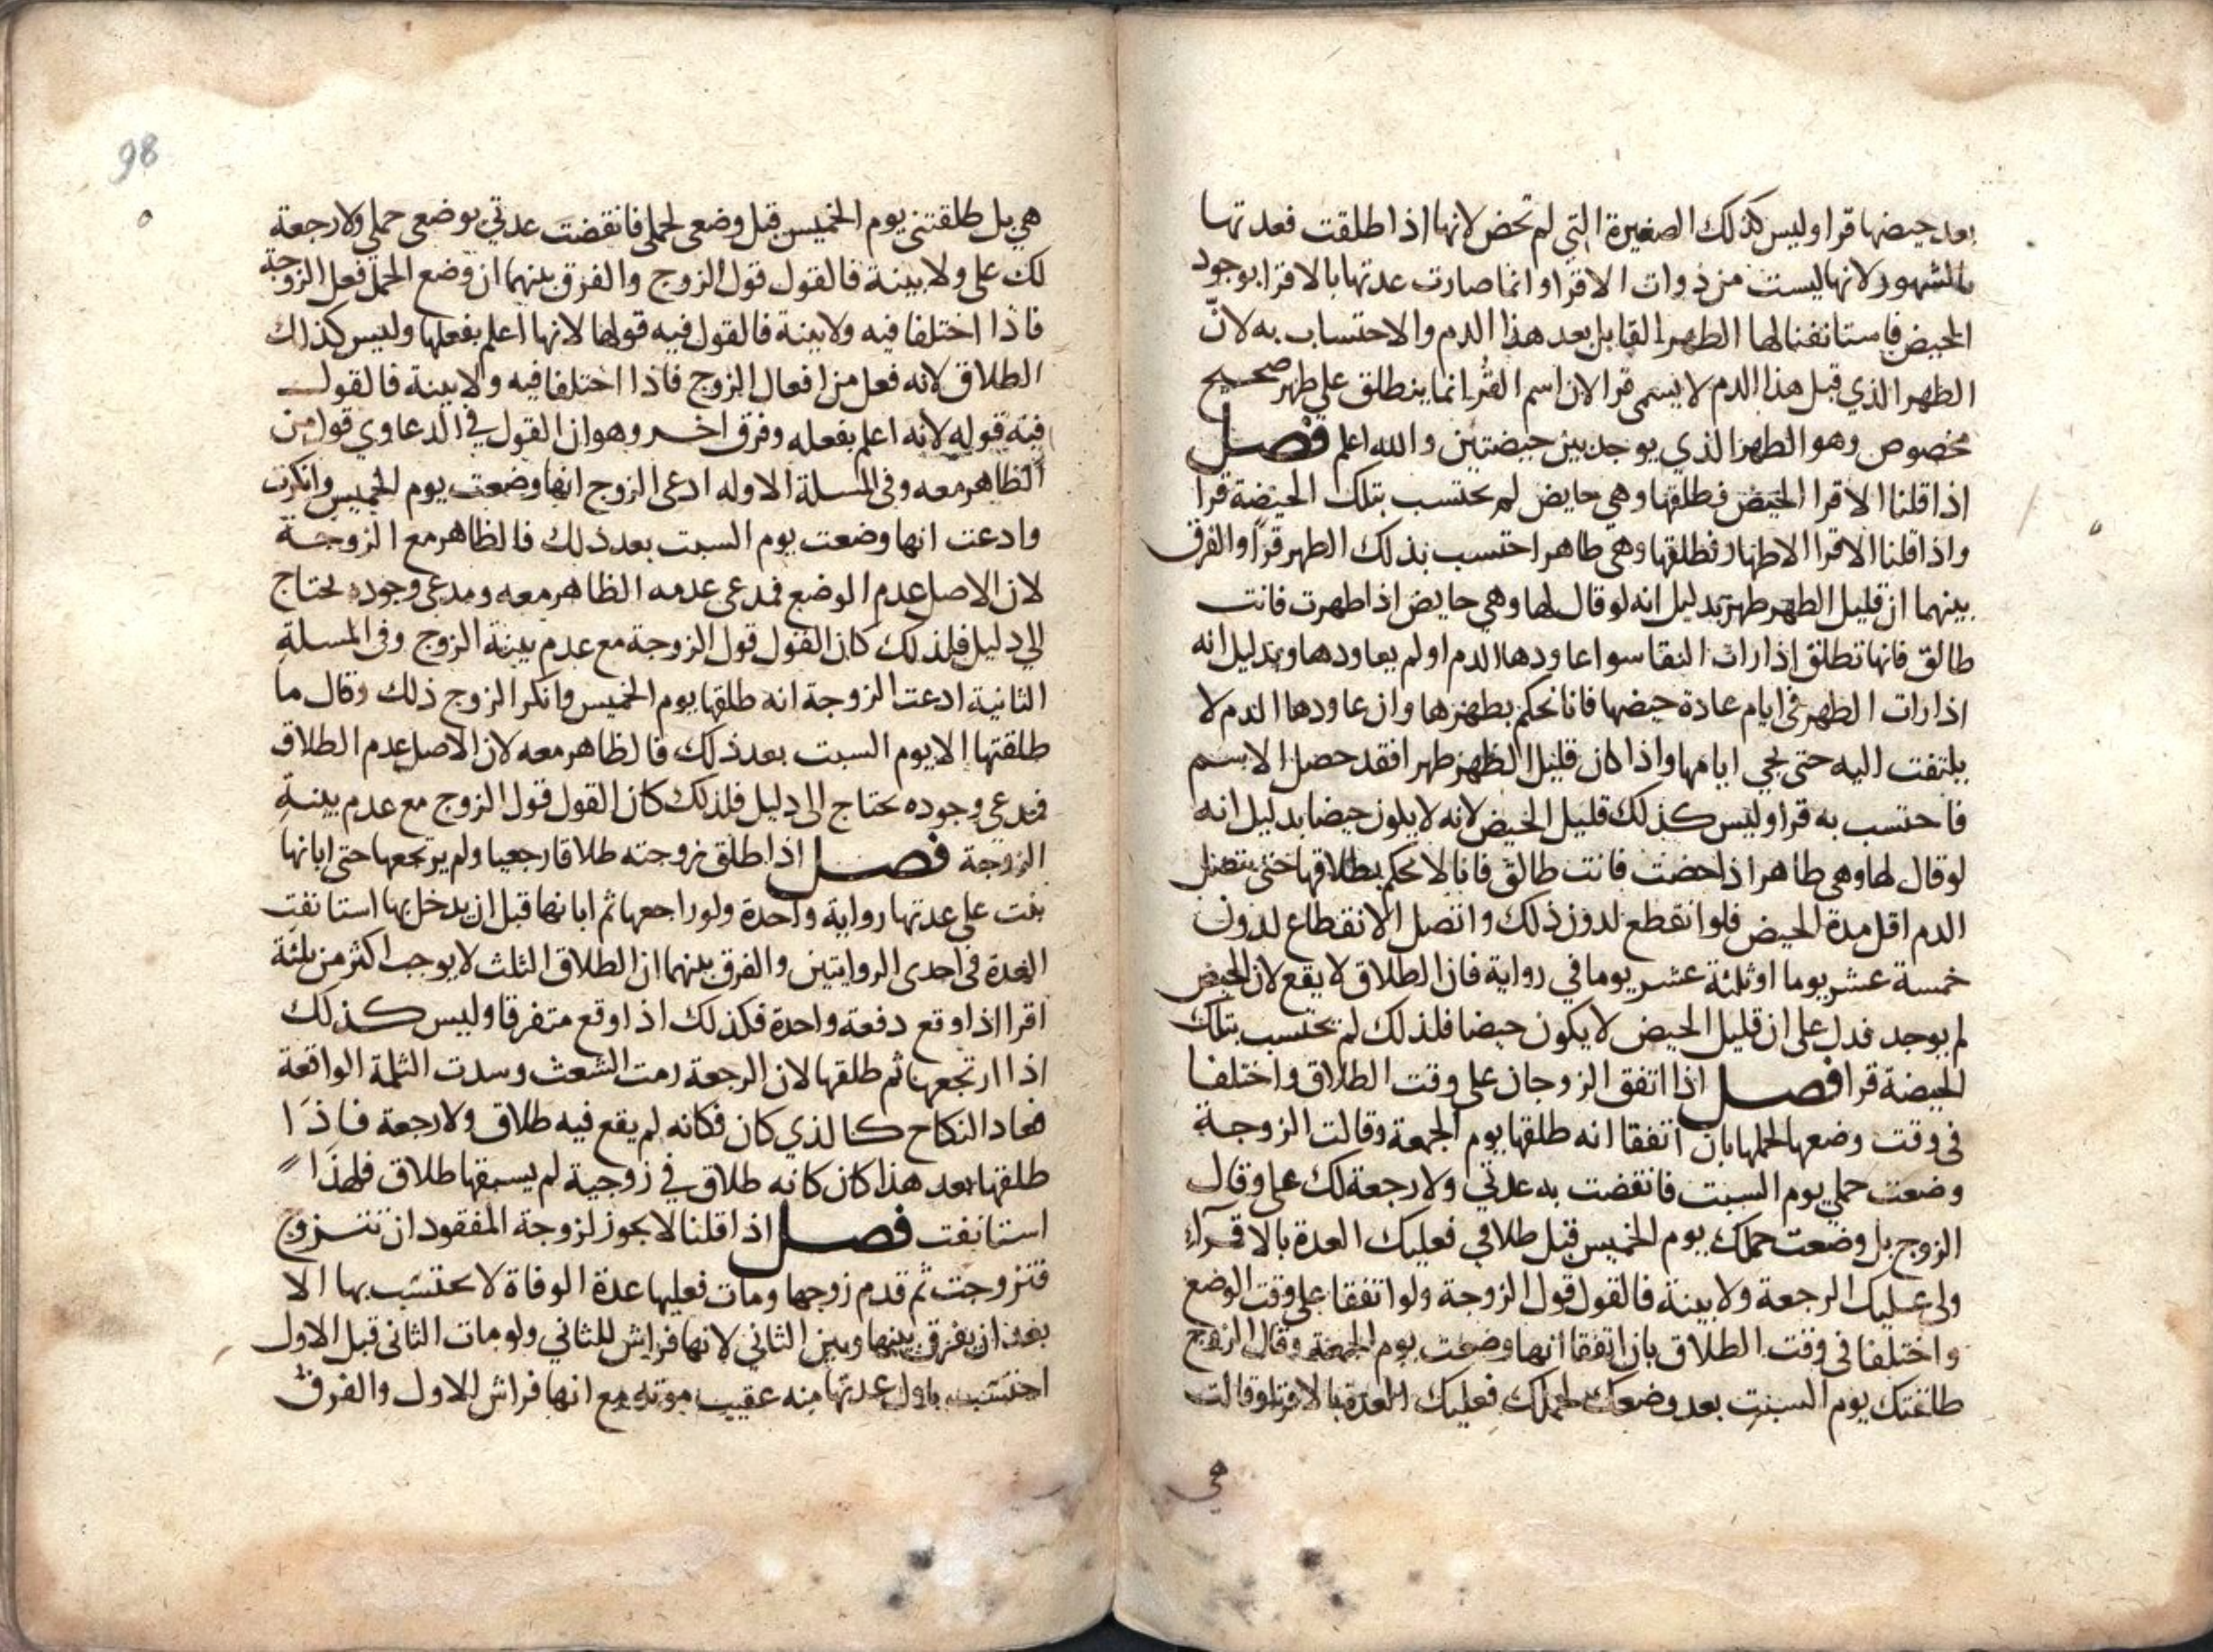 بعد حيضها قرا وليس كذلك الصغيرة التي لم تحض لانها اذا طلقت فعدتها
بالشهور لانها ليست من ذوات الاقرا وانما صارت عدتها بالاقرا بوجود
الحيض فاستانفنا لها الطهر القابل بعد هذا الدم والاحتساب به لانّ
الطهر الذي قبل هذا الدم لا يسمى قرا لان اسم القرُ انما ينطلق على طهر صحيح
مخصوص وهو الطهر الذي يوجد بين حيضتين والله اعلم فصل
اذا قلنا الاقرا الحيض فطلقها وهي حايض لم يحتسب بتلك الحيضة قرا
واذا قلنا الاقرا الاطهار فطلقها وهي طاهر احتسب بذلك الطهر قرًا والفرق
بينهما ان قليل الطهر طهر بدليل انه لو قال لها وهي حايض اذا طهرت فانت
طالق فانها تطلق اذا رات النقا سوا عاودها الدم او لم يعاودها وبدليل انه
اذا رات الطهر في ايام عادة حيضها فانا نحكم بطهرها وان عاودها الدم لا
يلتفت اليه حتى يجي ايامها واذا كان قليل الطهر طهرا فقد حصل الاسم
فاحتسب به قرا وليس كذلك قليل الحيض لانه لا يكون حيضا بدليل انه
لو قال لها وهي طاهر اذا حضت فانت طالق فانا لا نحكم بطلاقها حتى يتصل
الدم اقل مدة الحيض فلو انقطع لدون ذلك واتصل الانقطاع لدون
خمسة عشر يوما او ثلثة عشر يوما في رواية فان الطلاق لا يقع لان الحيض
لم يوجد فدل على ان قليل الحيض لا يكون حيضا فلذلك لم يحتسب بتلك
الحيضة قرا فصل اذا اتفق الزوجان على وقت الطلاق واختلفا
في وقت وضعها لحملها بان اتفقا انه طلقها يوم الجمعة وقالت الزوجة
وضعت حملي يوم السبت فانقضت به عدتي ولا رجعة لك علي وقال
الزوج بل وضعت حملك يوم الخميس قبل طلاقي فعليك العدة بالاقرآء
ولي عليك الرجعة ولا بينة فالقول قول الزوجة ولو اتفقا على وقت الوضع
واختلفا في وقت الطلاق بان اتفقا انها وضعت يوم الجمعة وقال الزوج
طلقتك يوم السبت بعد وضعك لحملك فعليك العدة بالاقرا وقالت
هي
98
هي بل طلقتني يوم الخميس قبل وضعي لحملي فانقضت عدتي بوضعي حملي ولا رجعة
لك علي ولا بينة فالقول قول الزوج والفرق بينهما ان وضع الحمل فعل الزوجة
فاذا اختلفا فيه ولا بينة فالقول فيه قولها لانها اعلم بفعلها وليس كذلك
الطلاق لانه فعل من افعال الزوج فاذا اختلفا فيه ولا بينة فالقول
فيه قوله لانه اعلم بفعله وفرق اخر وهو ان القول في الدعاوي قول من
الظاهر معه وفي المسلة الاوله ادعى الزوج انها وضعت يوم الخميس وانكرت
وادعت انها وضعت يوم السبت بعد ذلك فالظاهر مع الزوجة
لان الاصل عدم الوضع فمدعى عدمه الظاهر معه ومدعى وجوده يحتاج
الى دليل فلذلك كان القول قول الزوجة مع عدم بينة الزوج وفي المسلة
الثانية ادعت الزوجة انه طلقها يوم الخميس فانكر الزوج ذلك وقال ما
طلقتها الا يوم السبت بعد ذلك فالظاهر معه لان الاصل عدم الطلاق
فمدعى وجوده يحتاج الى دليل فلذلك كان القول قول الزوج مع عدم بينة
الزوجة فصل اذا طلق زوجته طلاقا رجعيا ولم يرتجعها حتى ابانها
بنت على عدتها رواية واحدة ولو راجعها ثم ابانها قبل ان يدخل بها استانفت
العدة في احدى الروايتين والفرق بينهما ان الطلاق الثلث لا يوجب اكثر من ثلثة
اقرا اذا وقع دفعة واحدة فكذلك اذا وقع متفرقا وليس كذلك
اذا ارتجعها ثم طلقها لان الرجعة رمت الشعث وسدت الثلمة الواقعة
فعاد النكاح كالذي كان فكانه لم يقع فيه طلاق ولا رجعة فاذا
طلقها بعد هذا كان كانه طلاق في زوجية لم يسبقها طلاق فلهذا
استانفت فصل اذا قلنا لا يجوز لزوجة المفقود ان تتزوج
فتزوجت ثم قدم زوجها ومات فعليها عدة الوفاة لا يحتسب بها الا
بعد ان يفرق بينها وبين الثاني لانها فراش للثاني ولو مات الثاني قبل الاول
احتسب باول عدتها منه عقيب موته مع انها فراش للاول والفرق